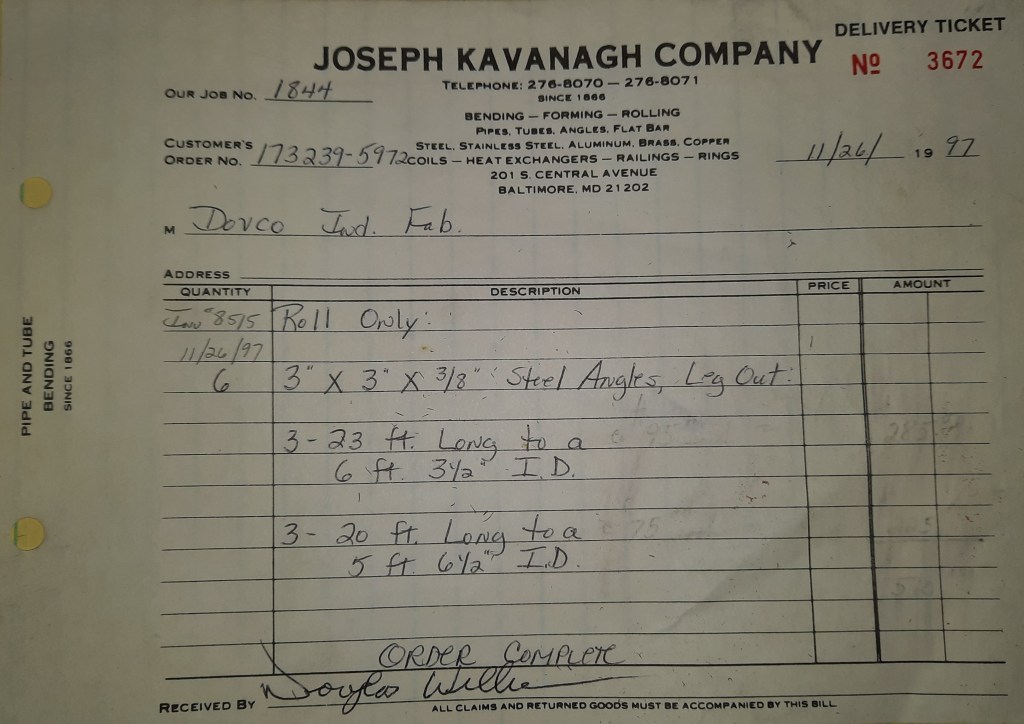 DELIVERY TICKET
JOSEPH KAVANAGH COMPANY
Nº 3672
TELEPHONE: 276-8070 — 276-8071
OUR JOB NO. 1844
SINCE 1866
BENDING — FORMING — ROLLING
PIPES, TUBES, ANGLES, FLAT BAR
CUSTOMER'S STEEL, STAINLESS STEEL, ALUMINUM, BRASS, COPPER
ORDER NO. 173239-5972 COILS — HEAT EXCHANGERS — RAILINGS — RINGS 11/26/ 19 97
201 S. CENTRAL AVENUE
BALTIMORE, MD 21202
M Dovco Ind. Fab.
ADDRESS
QUANTITY DESCRIPTION PRICE AMOUNT
Inv #8515 Roll Only:
11/26/97
6 3" X 3" X 3/8" Steel Angles, Leg Out:
3 - 23 ft. Long to a
6 ft. 3 1/2" I.D.
3 - 20 ft. Long to a
5 ft. 6 1/2" I.D.
ORDER COMPLETE
RECEIVED BY Douglas
ALL CLAIMS AND RETURNED GOODS MUST BE ACCOMPANIED BY THIS BILL
PIPE AND TUBE
BENDING
SINCE 1866